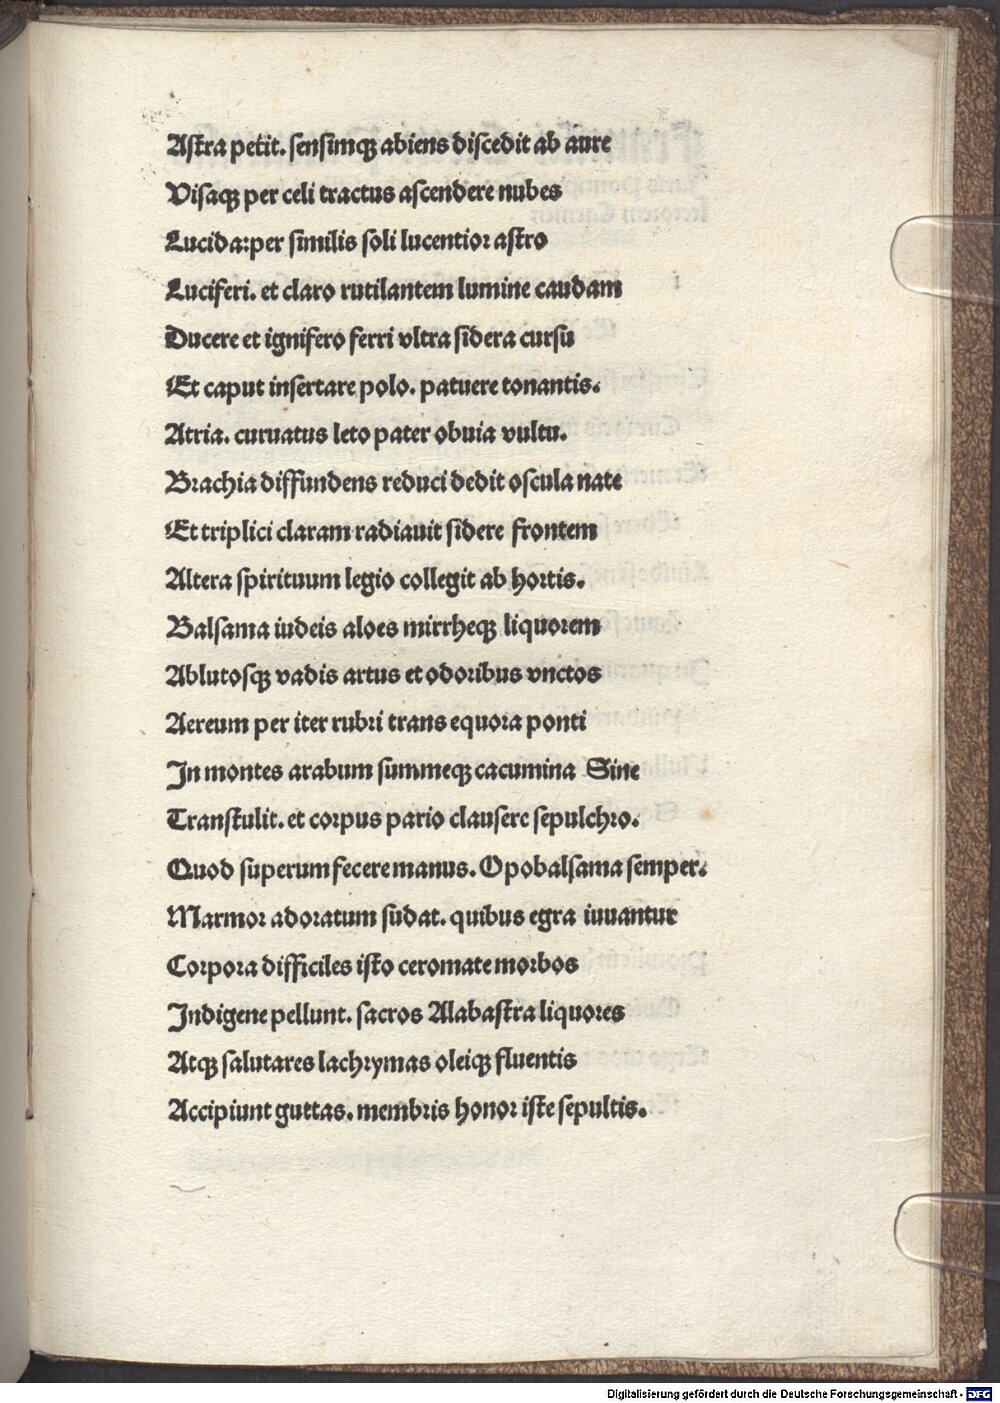 Astra petit. sensimqꝫ abiens discedit ab aure
Visaqꝫ per celi tractus ascendere nubes
Lucida: per similis soli lucentior astro
Luciferi. et claro rutilantem lumine caudam
Ducere et ignifero ferri vltra sidera cursu
Et caput insertare polo. patuere tonantis.
Atria. curuatus leto pater obuia vultu.
Brachia diffundens reduci dedit oscula nate
Et triplici claram radiauit sidere frontem
Altera spirituum legio collegit ab hortis.
Balsama iudeis aloes mirrheqꝫ liquorem
Ablutosqꝫ vadis artus et odoribus vnctos
Aereum per iter rubri trans equora ponti
In montes arabum summeqꝫ cacumina Sine
Transtulit. et corpus pario clausere sepulchro.
Quod superum fecere manus. Opobalsama semper.
Marmor adoratum sudat. quibus egra iuuantur
Corpora difficiles isto ceromate morbos
Indigene pellunt. sacros Alabastra liquores
Atqꝫ salutares lachrymas oleiqꝫ fluentis
Accipiunt guttas. membris honor iste sepultis.
Digitalisierung gefördert durch die Deutsche Forschungsgemeinschaft - DFG